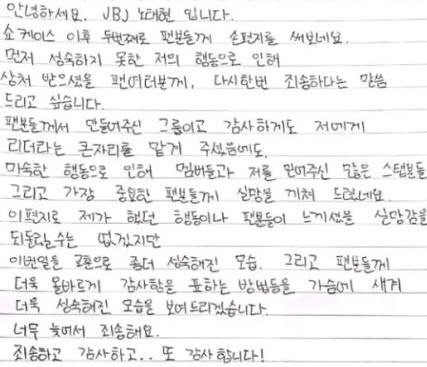 안녕하세요. JBJ 노태현 입니다.
쇼케이스 이후 두번째로 팬분들께 손편지를 써보네요.
먼저 성숙하지 못한 저의 행동으로 인해
상처 받으셨을 팬여러분께, 다시한번 죄송하다는 말씀
드리고 싶습니다.
팬분들께서 만들어주신 그룹이고 감사하게도 저에게
리더라는 큰자리를 맡게 주셨음에도,
미숙한 행동으로 인해 멤버들과 저를 믿어주신 많은 스텝분들
그리고 가장 중요한 팬분들께 실망을 끼쳐 드렸네요.
이편지로 제가 했던 행동이나 팬분들이 느끼셨을 실망감을
되돌릴수는 없겠지만
이번일을 교훈으로 좀더 성숙해진 모습, 그리고 팬분들께
더욱 올바르게 감사함을 표하는 방법들을 가슴에 새겨
더욱 성숙해진 모습을 보여드리겠습니다.
너무 늦어서 죄송해요.
죄송하고 감사하고.. 또 감사합니다!